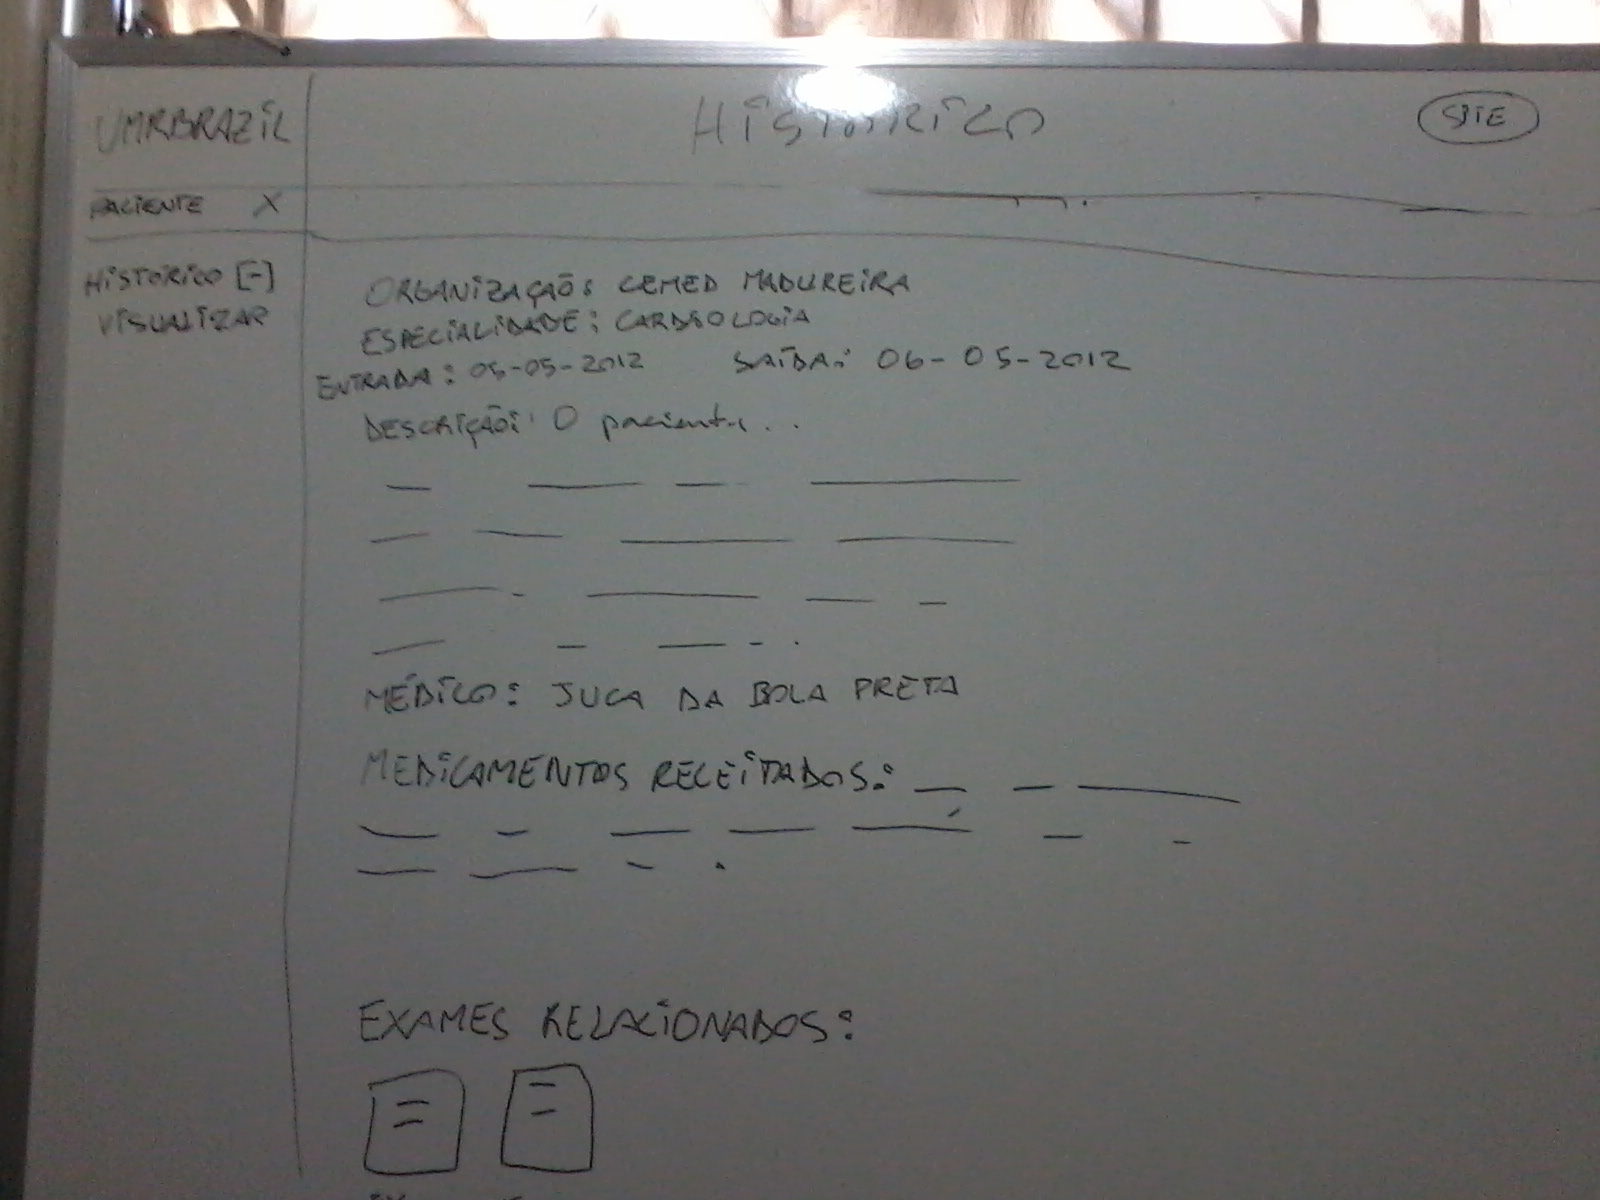 UMRBRAZIL
HISTÓRICO
SITE
PACIENTE X
HISTÓRICO [-]
VISUALIZAR
ORGANIZAÇÃO: CEMED MADUREIRA
ESPECIALIDADE: CARDIOLOGIA
ENTRADA: 05-05-2012 SAÍDA: 06-05-2012
DESCRIÇÃO: O paciente...
MÉDICO: JUCA DA BOLA PRETA
MEDICAMENTOS RECEITADOS:
EXAMES RELACIONADOS: